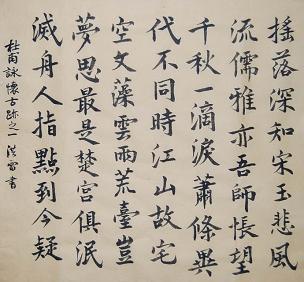 搖落深知宋玉悲風
流儒雅亦吾師悵望
千秋一滴淚蕭條異
代不同時江山故宅
空文藻雲雨荒臺豈
夢思最是楚宮俱泯
滅舟人指點到今疑
杜甫詠懷古跡之一 書